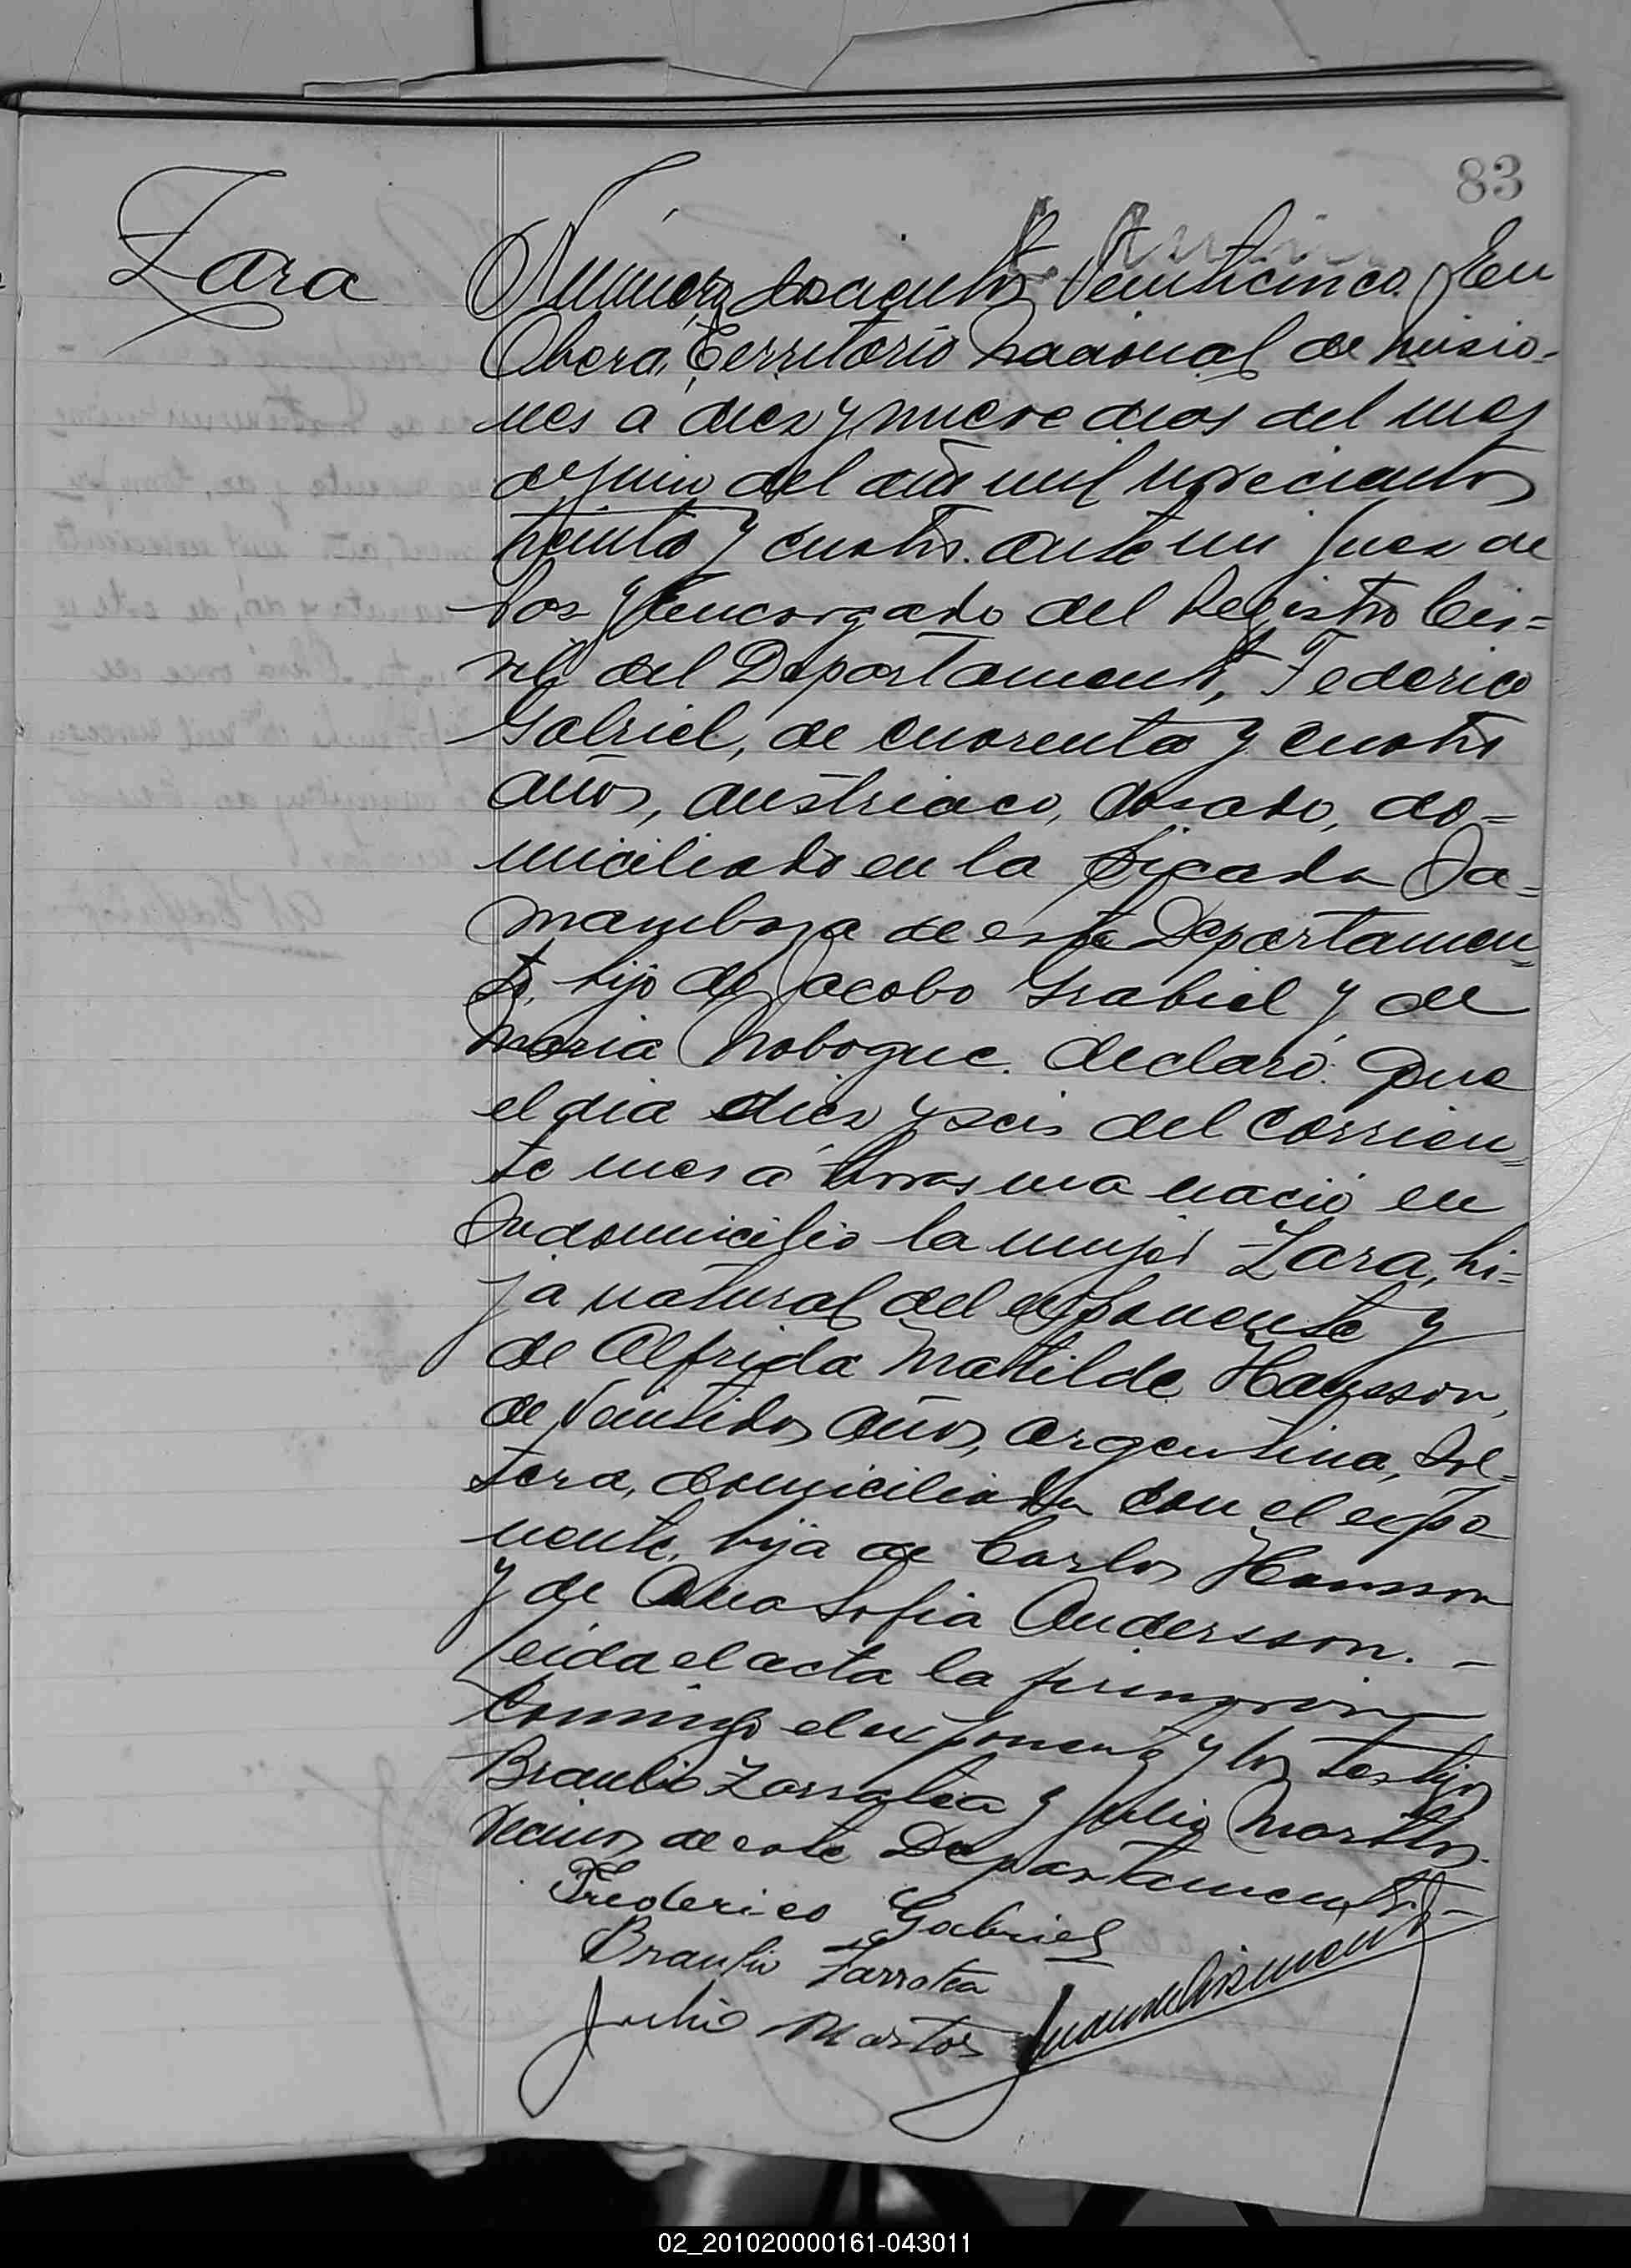 83
Zara
Número doscientos veinticinco. En
Oberá, Territorio Nacional de Misio-
nes a diez y nueve dias del mes
de junio del año mil novecientos
treinta y cuatro. ante mi Juez de
Paz y Encargado del Registro Ci=
vil del Departamento, Federico
Gabriel, de cuarenta y cuatro
años, austriaco, casado, do=
miciliado en la picada
de este Departamen=
to, hijo de Jacobo Grabiel y de
Maria declaró: Que
el dia diez y seis del corrien=
te mes a horas una nació en
su domicilio la mujer Zara, hi=
ja natural del exponente y
de Alfrida Matilde Hansson,
de veintidos años, argentina, sol=
tera, domiciliada con el expo
nente, hija de Carlos Hansson
y de Ana Sofia Andersson. –
Leida el acta la firmaron
conmigo el exponente y los testigos
Braulio Zarratea y Julio Martos.
vecinos de este Departamento. –
Frederico Gabriel
Braulio Zarratea
Julio Martos
02_201020000161-043011